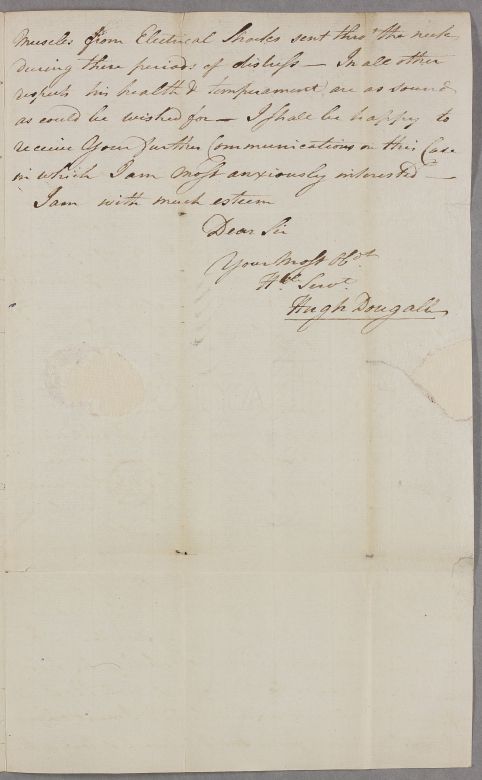 Muscles from Electrical Shocks sent thro' the neck
during these periods of distress — In all other
respects his health & temperament are as sound
as could be wished for — I shall be happy to
receive Your further Communications on this Case
in which I am most anxiously interested —
I am with much esteem
Dear Sir
Your Most Obdt
Hble Servt
Hugh Dougall